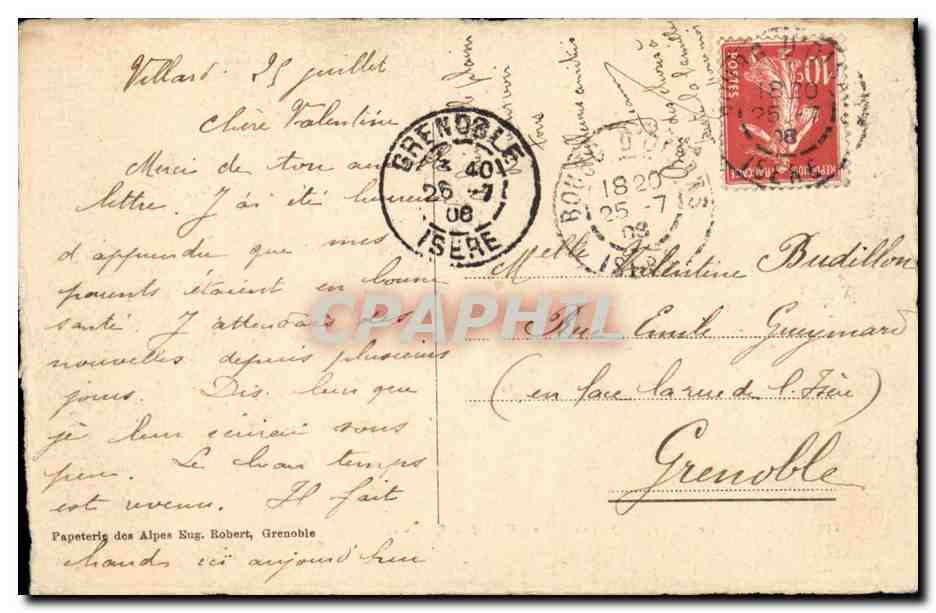 Villard 25 juillet
Chère Valentine
Merci de ton
lettre. J'ai été
d'apprendre que mes
parents étaient en bonne
santé. J'attendais des
nouvelles depuis plusieurs
jours. Dis leur que
je leur écrirai sous
peu. Le beau temps
est revenu. Il fait
chaud ici aujourd'hui
Papeterie des Alpes Eug. Robert, Grenoble
Bons baisers à
toute la famille
amitiés
GRENOBLE
3 40
26 - 7
08
ISERE
18 20
25 - 7
08
10c
POSTES
REPUBLIQUE FRANÇAISE
18 20
25 - 7
08
ISERE
Melle Valentine Budillon
Rue Emile Gueymard
(en face la rue de l'Isère)
Grenoble
CPAPHIL